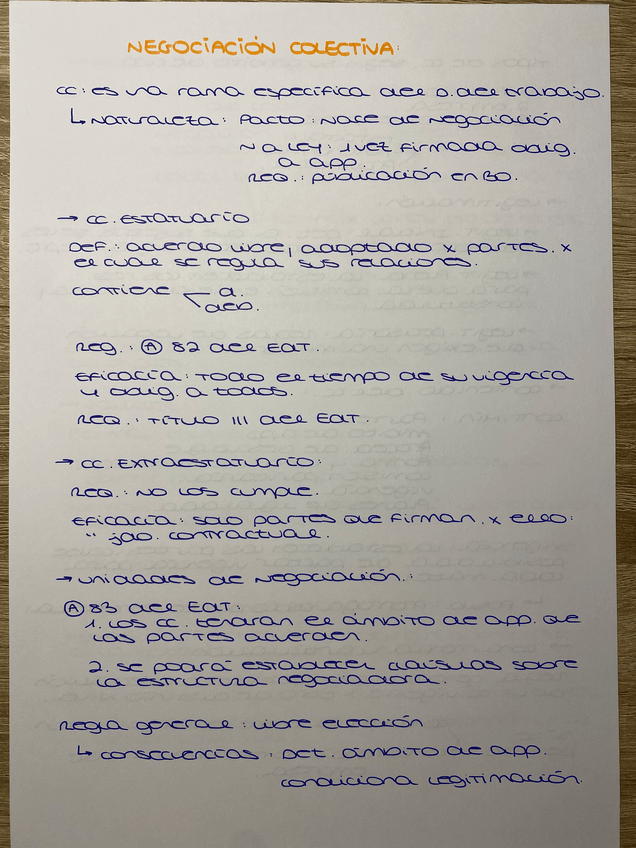 NEGOCIACIÓN COLECTIVA:
CC: es una rama específica del D. del trabajo.
↳ NATURALEZA: PACTO: NACE DE NEGOCIACIÓN
N a LEY: 1 vez firmada oblig.
a app.
REQ.: publicación en BO.
→ CC. ESTATUARIO
DEF.: acuerdo libre, adoptado x partes. x
el cual se regula sus relaciones.
CONTIENE a.
deb.
Reg.: Ⓐ 82 del EdT.
EFICACIA: TODO el tiempo de su vigencia
y oblig. a todos.
REQ.: TÍTULO III del EdT.
→ CC. EXTRAESTATUARIO:
REQ.: NO LOS cumple.
EFICACIA: solo partes que firman. x ello:
" jdo. contractual.
→ unidades de Negociación.:
Ⓐ 83 del EdT:
1. Los CC. tendrán el ámbito de app. que
las partes acuerden.
2. se podrá establecer claúsulas sobre
la estructura negociadora.
Regla general: libre elección
↳ consecuencias: DET. ámbito de app.
condiciona legitimación.